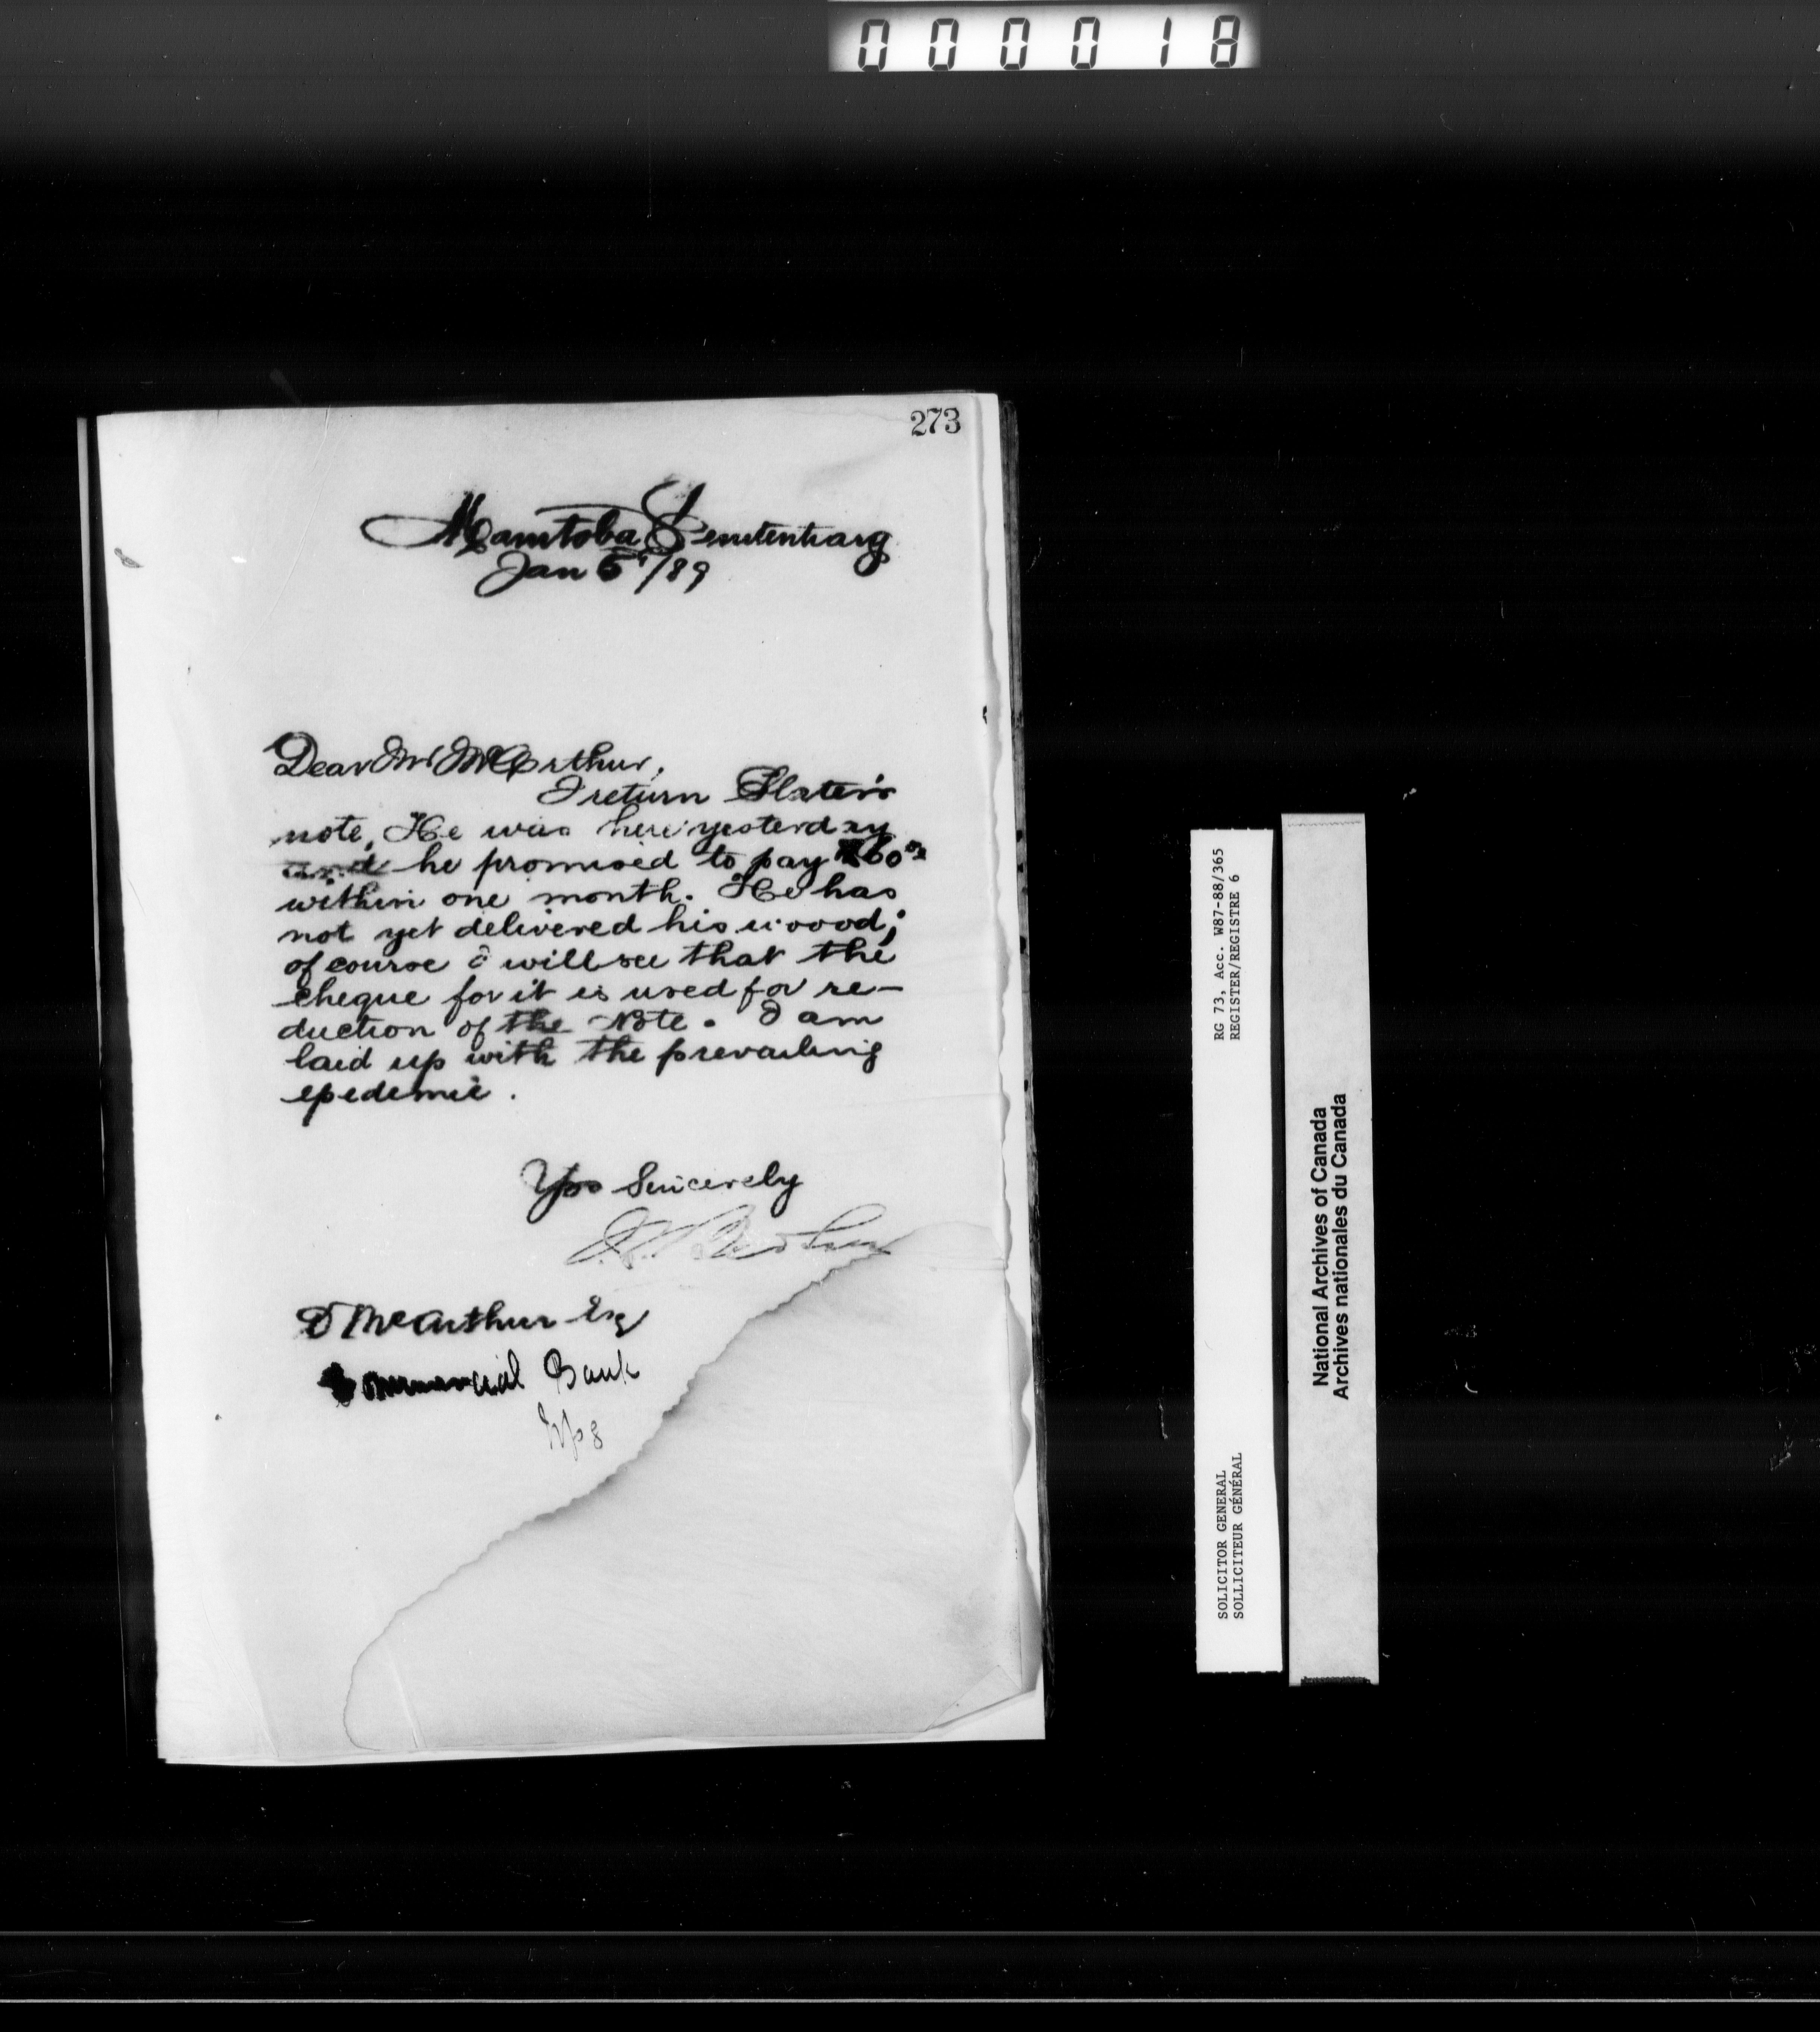 000018
273
Manitoba Penitentiary
Jan 5th/89
Dear Mr McArthur,
I return Slater's
note, He was here yesterday
and he promised to pay $60
within one month. He has
not yet delivered his wood;
of course I will see that the
cheque for it is used for re-
duction of the Note. I am
laid up with the prevailing
epedemic.
Yrs Sincerely
D McArthur Esq
Commercial Bank
Wpg
RG 73, Acc. W87-88/365
REGISTER/REGISTRE 6
SOLICITOR GENERAL
SOLLICITEUR GÉNÉRAL
National Archives of Canada
Archives nationales du Canada